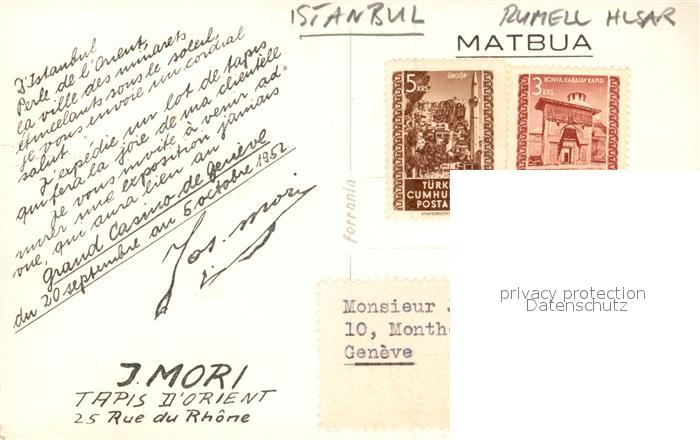 ISTANBUL RUMELL HLSAR
MATBUA
D'Istanbul
Perle de l'Orient,
la ville des minarets
étincelants sous le soleil,
je vous envoie un cordial
salut.
J'expédie un lot de tapis
qui fera la joie de ma clientèle
Je vous invite à venir ad-
mirer une exposition jamais
vue, qui aura lieu au
Grand Casino de Genève
du 20 septembre au 5 octobre 1952
Jos. Mori
J. MORI
TAPIS D'ORIENT
25 Rue du Rhône
Ferrania
5 KRŞ.
ÜRGÜP
TÜRK
CUMHUR
POSTA
3 KRŞ.
KONYA: KARATAY KAPISI
Monsieur J
10, Month
Genève
privacy protection
Datenschutz